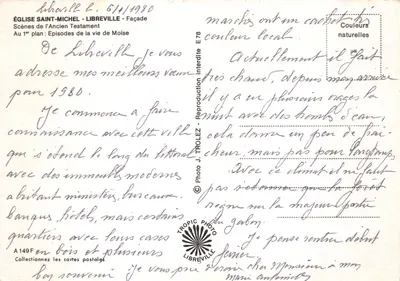 Libreville le 6/1/1980
ÉGLISE SAINT-MICHEL - LIBREVILLE - Façade
Scènes de l'Ancien Testament
Au 1er plan : Episodes de la vie de Moïse
De Libreville je vous
adresse mes meilleurs vœux
pour 1980.
Je commence à faire
connaissance avec cette ville
qui s'étend le long du littoral
avec des immeubles modernes
abritant ministères, bureaux,
banques, hôtels, mais certains
quartiers avec leurs cases
en bois et plusieurs
A 149F
Collectionnez les cartes postales
bon souvenir
© Photo J. TROLEZ - Reproduction interdite E 78
TROPIC PHOTO
LIBREVILLE
Couleurs
naturelles
marchés ont un cachet très
couleur local.
Actuellement il fait
très chaud, depuis mon arrivée
il y a eu plusieurs orages la
nuit avec des trombes d'eau,
cela donne un peu de fraî-
cheur, mais pas pour longtemps.
Avec ce climat il ne faut
pas s'étonner que la forêt
règne sur la majeure partie
du Gabon
Je pense rentrer début
février
Je vous prie cher Monsieur à mon
Marie Antoinette